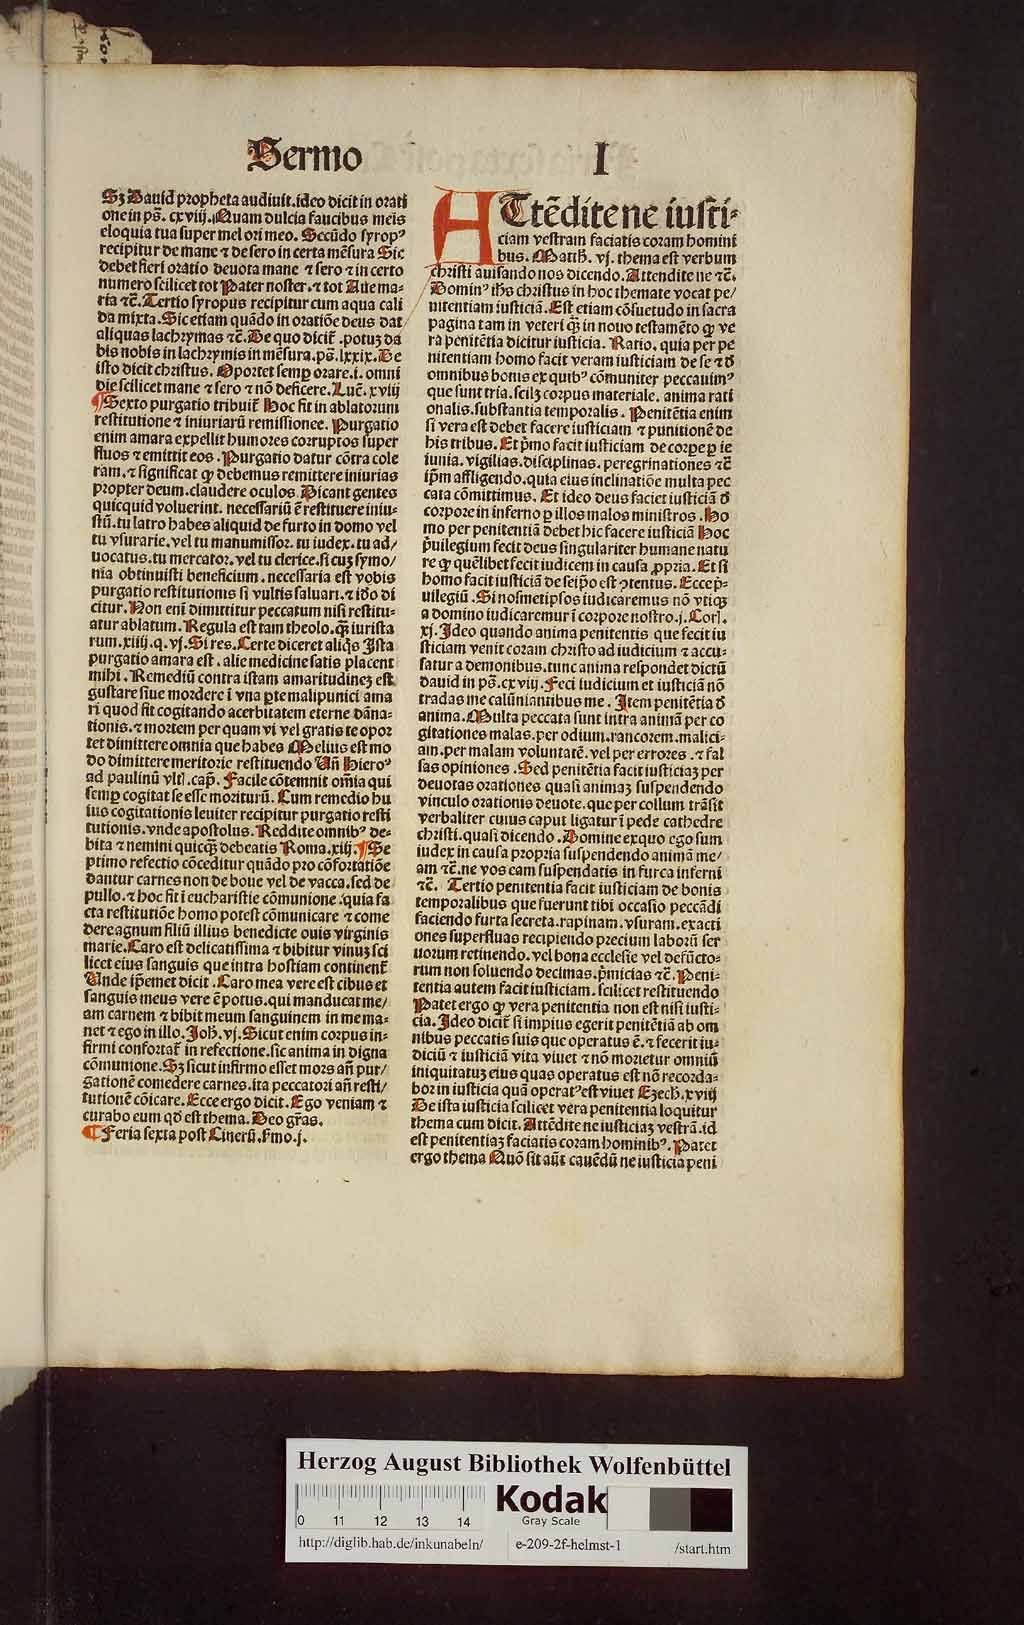 Sermo I
Sꝫ Dauid propheta audiuit. ideo dicit in orati
one in ps̄. cxviij. Quam dulcia faucibus meis
eloquia tua super mel ori meo. Secūdo syropꝰ
recipitur de mane ⁊ de sero in certa mēsura Sic
debet fieri oratio deuota mane ⁊ sero ⁊ in certo
numero scilicet tot Pater noster. ⁊ tot Aue ma-
ria ⁊c̄. Tertio syropus recipitur cum aqua cali
da mixta. Sic etiam quādo in oratiōe deus dat
aliquas lachrymas ⁊c̄. De quo dicit̄ .potuꝫ da
bis nobis in lachrymis in mēsura. ps̄. lxxix. De
isto dicit christus. Oportet semꝑ orare .i. omni
die scilicet mane ⁊ sero ⁊ nō deficere. Luc̄. xviij
¶ Sexto purgatio tribuit̄ Hoc fit in ablatorum
restitutione ⁊ iniuriarū remissionee. Purgatio
enim amara expellit humores corruptos super
fluos ⁊ emittit eos . Purgatio datur cōtra cole
ram. ⁊ significat ꝙ debemus remittere iniurias
propter deum. claudere oculos. Dicant gentes
quicquid voluerint. necessariū ē restituere iniu-
stū. tu latro habes aliquid de furto in domo vel
tu vsurarie. vel tu manumissor. tu iudex. tu ad/
uocatus. tu mercator. vel tu clerice. si cuꝫ symo/
nia obtinuisti beneficium . necessaria est vobis
purgatio restitutionis si vultis saluari. ⁊ iđo di
citur. Non enī dimittitur peccatum nisi restitu-
atur ablatum. Regula est tam theolo. qꝫ iurista
rum. xiiij. q. vj. Si res. Certe diceret aliqs̄ Ista
purgatio amara est . alie medicine satis placent
mihi . Remediū contra istam amaritudineꝫ est
gustare siue mordere ī vna ꝑte malipunici ama
ri quod fit cogitando acerbitatem eterne dāna-
tionis. ⁊ mortem per quam vi vel gratis te opor
tet dimittere omnia que habes Melius est mo
do dimittere meritorie restituendo Vn̄ Hieroꝰ
ad paulinū vltī. cap̄. Facile cōtemnit om̄ia qui
semꝑ cogitat se esse moriturū. Cum remedio hu
ius cogitationis leuiter recipitur purgatio resti
tutionis. vnde apostolus. Reddite omnibꝰ de-
bita ⁊ nemini quicqꝫ debeatis Roma. xiij. ¶ Se
ptimo refectio cōceditur quādo pro cōfortatiōe
dantur carnes non de boue vel de vacca. sed de
pullo. ⁊ hoc fit ī eucharistie cōmunione. quia fa
cta restitutiōe homo potest cōmunicare ⁊ come
dere agnum filiū illius benedicte ouis virginis
marie. Caro est delicatissima ⁊ bibitur vinuꝫ sci
licet eius sanguis que intra hostiam continent̄
Unde ip̄emet dicit . Caro mea vere est cibus et
sanguis meus vere ē potus. qui manducat me/
am carnem ⁊ bibit meum sanguinem in me ma-
net ⁊ ego in illo. Joh̄. vj. Sicut enim corpus in-
firmi confortat̄ in refectione. sic anima in digna
cōmunione. Sꝫ sicut infirmo esset mors an̄ pur/
gationē comedere carnes. ita peccatori an̄ resti/
tutionē cōicare. Ecce ergo dicit. Ego veniam ⁊
curabo eum qđ est thema. Deo gr̄as.
¶ Feria sexta post Cinerū. s̄mo. j.
ATtēdite ne iusti-
ciam vestram faciatis coram homini
bus. Matth̄. vj. thema est verbum
christi auisando nos dicendo. Attendite ne ⁊c̄.
Dominꝰ ih̄s christus in hoc themate vocat pe/
nitentiam iusticiā. Est etiam cōsuetudo in sacra
pagina tam in veteri qꝫ in nouo testamēto ꝙ ve
ra penitētia dicitur iusticia. Ratio. quia per pe
nitentiam homo facit veram iusticiam de se ⁊ đ
omnibus bonis ex quibꝰ cōmuniter peccauimꝰ
que sunt tria. scilꝫ corpus materiale. anima rati
onalis. substantia temporalis. Penitētia enim
si vera est debet facere iusticiam ⁊ punitionē de
his tribus. Et p̄mo facit iusticiam de corpe ꝑ ie
iunia. vigilias. disciplinas. peregrinationes ⁊c̄
ip̄m affligendo. quia eius inclinatiōe multa pec
cata cōmittimus. Et ideo deus faciet iusticiā đ
corpore in inferno ꝑ illos malos ministros . Ho
mo per penitentiā debet hic facere iusticiā Hoc
p̄uilegium fecit deus singulariter humane natu
re ꝙ quēlibet fecit iudicem in causa ꝓpria. Et si
homo facit iusticiā de seip̄o est ꝯtentus. Ecce p̄-
uilegiū. Si nosmetipsos iudicaremus nō vtiqꝫ
a domino iudicaremur ī corpore nostro. j. Corī.
xj. Ideo quando anima penitentis que fecit iu
sticiam venit coram christo ad iudicium ⁊ accu-
satur a demonibus. tunc anima respondet dictū
dauid in ps̄. cxviij. Feci iudicium et iusticiā nō
tradas me calūniantibus me. Item penitētia đ
anima. Multa peccata sunt intra animā per co
gitationes malas. per odium. rancorem. malici-
am. per malam voluntatē. vel per errores . ⁊ fal
sas opiniones . Sed penitētia facit iusticiaꝫ per
deuotas orationes quasi animaꝫ suspendendo
vinculo orationis deuote. que per collum trāsit
verbaliter cuius caput ligatur ī pede cathedre
christi. quasi dicendo . Domine ex quo ego sum
iudex in causa propria suspendendo animā me/
am ⁊c̄. ne vos eam suspendatis in furca inferni
⁊c̄. Tertio penitentia facit iusticiam de bonis
temporalibus que fuerunt tibi occasio peccādi
faciendo furta secreta. rapinam. vsuram. exacti
ones superfluas recipiendo precium laborū ser
uorum retinendo. vel bona ecclesie vel defūcto-
rum non soluendo decimas. p̄micias ⁊c̄. Peni-
tentia autem facit iusticiam. scilicet restituendo
Patet ergo ꝙ vera penitentia non est nisi iusti-
cia. Ideo dicit̄ si impius egerit penitētiā ab om
nibus peccatis suis que operatus ē. ⁊ fecerit iu-
diciū ⁊ iusticiā vita viuet ⁊ nō morietur omniū
iniquitatuꝫ eius quas operatus est nō recorda-
bor in iusticia quā operatꝰ est viuet Ezech̄. xviij
De ista iusticia scilicet vera penitentia loquitur
thema cum dicit. Attēdite ne iusticiaꝫ vestrā. id
est penitentiaꝫ faciatis coram hominibꝰ. Patet
ergo thema Quō sit aūt cauēdū ne iusticia peni
Herzog August Bibliothek Wolfenbüttel
0 11 12 13 14
Kodak
Gray Scale
http://diglib.hab.de/inkunabeln/ e-209-2f-helmst-1 /start.htm